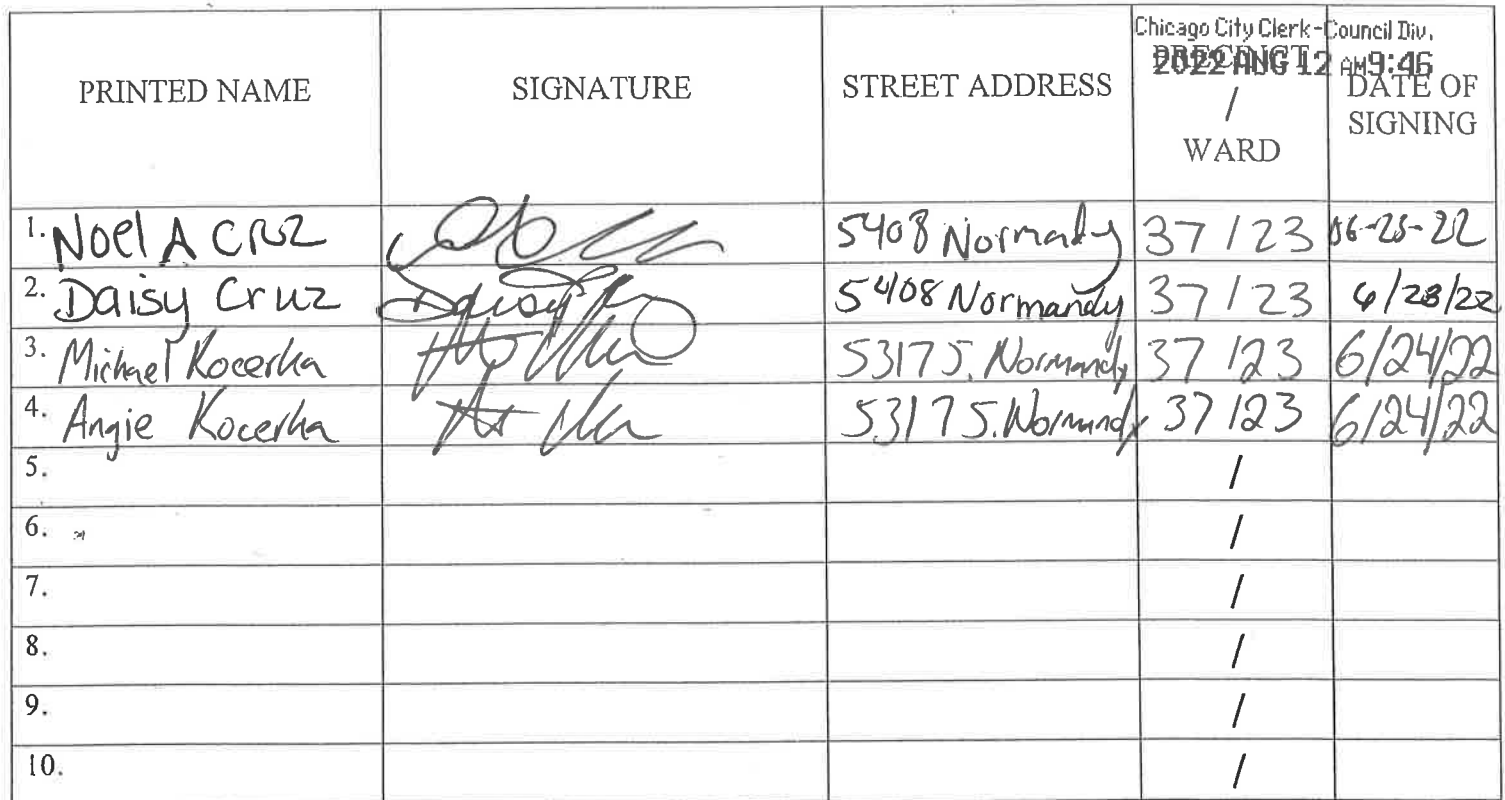 Chicago City Clerk-Council Div.
2022 AUG 12 AM 9:46
PRINTED NAME SIGNATURE STREET ADDRESS PRECINCT / WARD DATE OF SIGNING
1. Noel A Cruz 5408 Normandy 37 / 23
2. Daisy Cruz Daisy 5408 Normandy 37 / 23 6/23/22
3. Michael Kocerka 5317 S. Normandy 37 / 23 6/24/22
4. Angie Kocerka 5317 S. Normandy 37 / 23 6/24/22
5. /
6. /
7. /
8. /
9. /
10. /